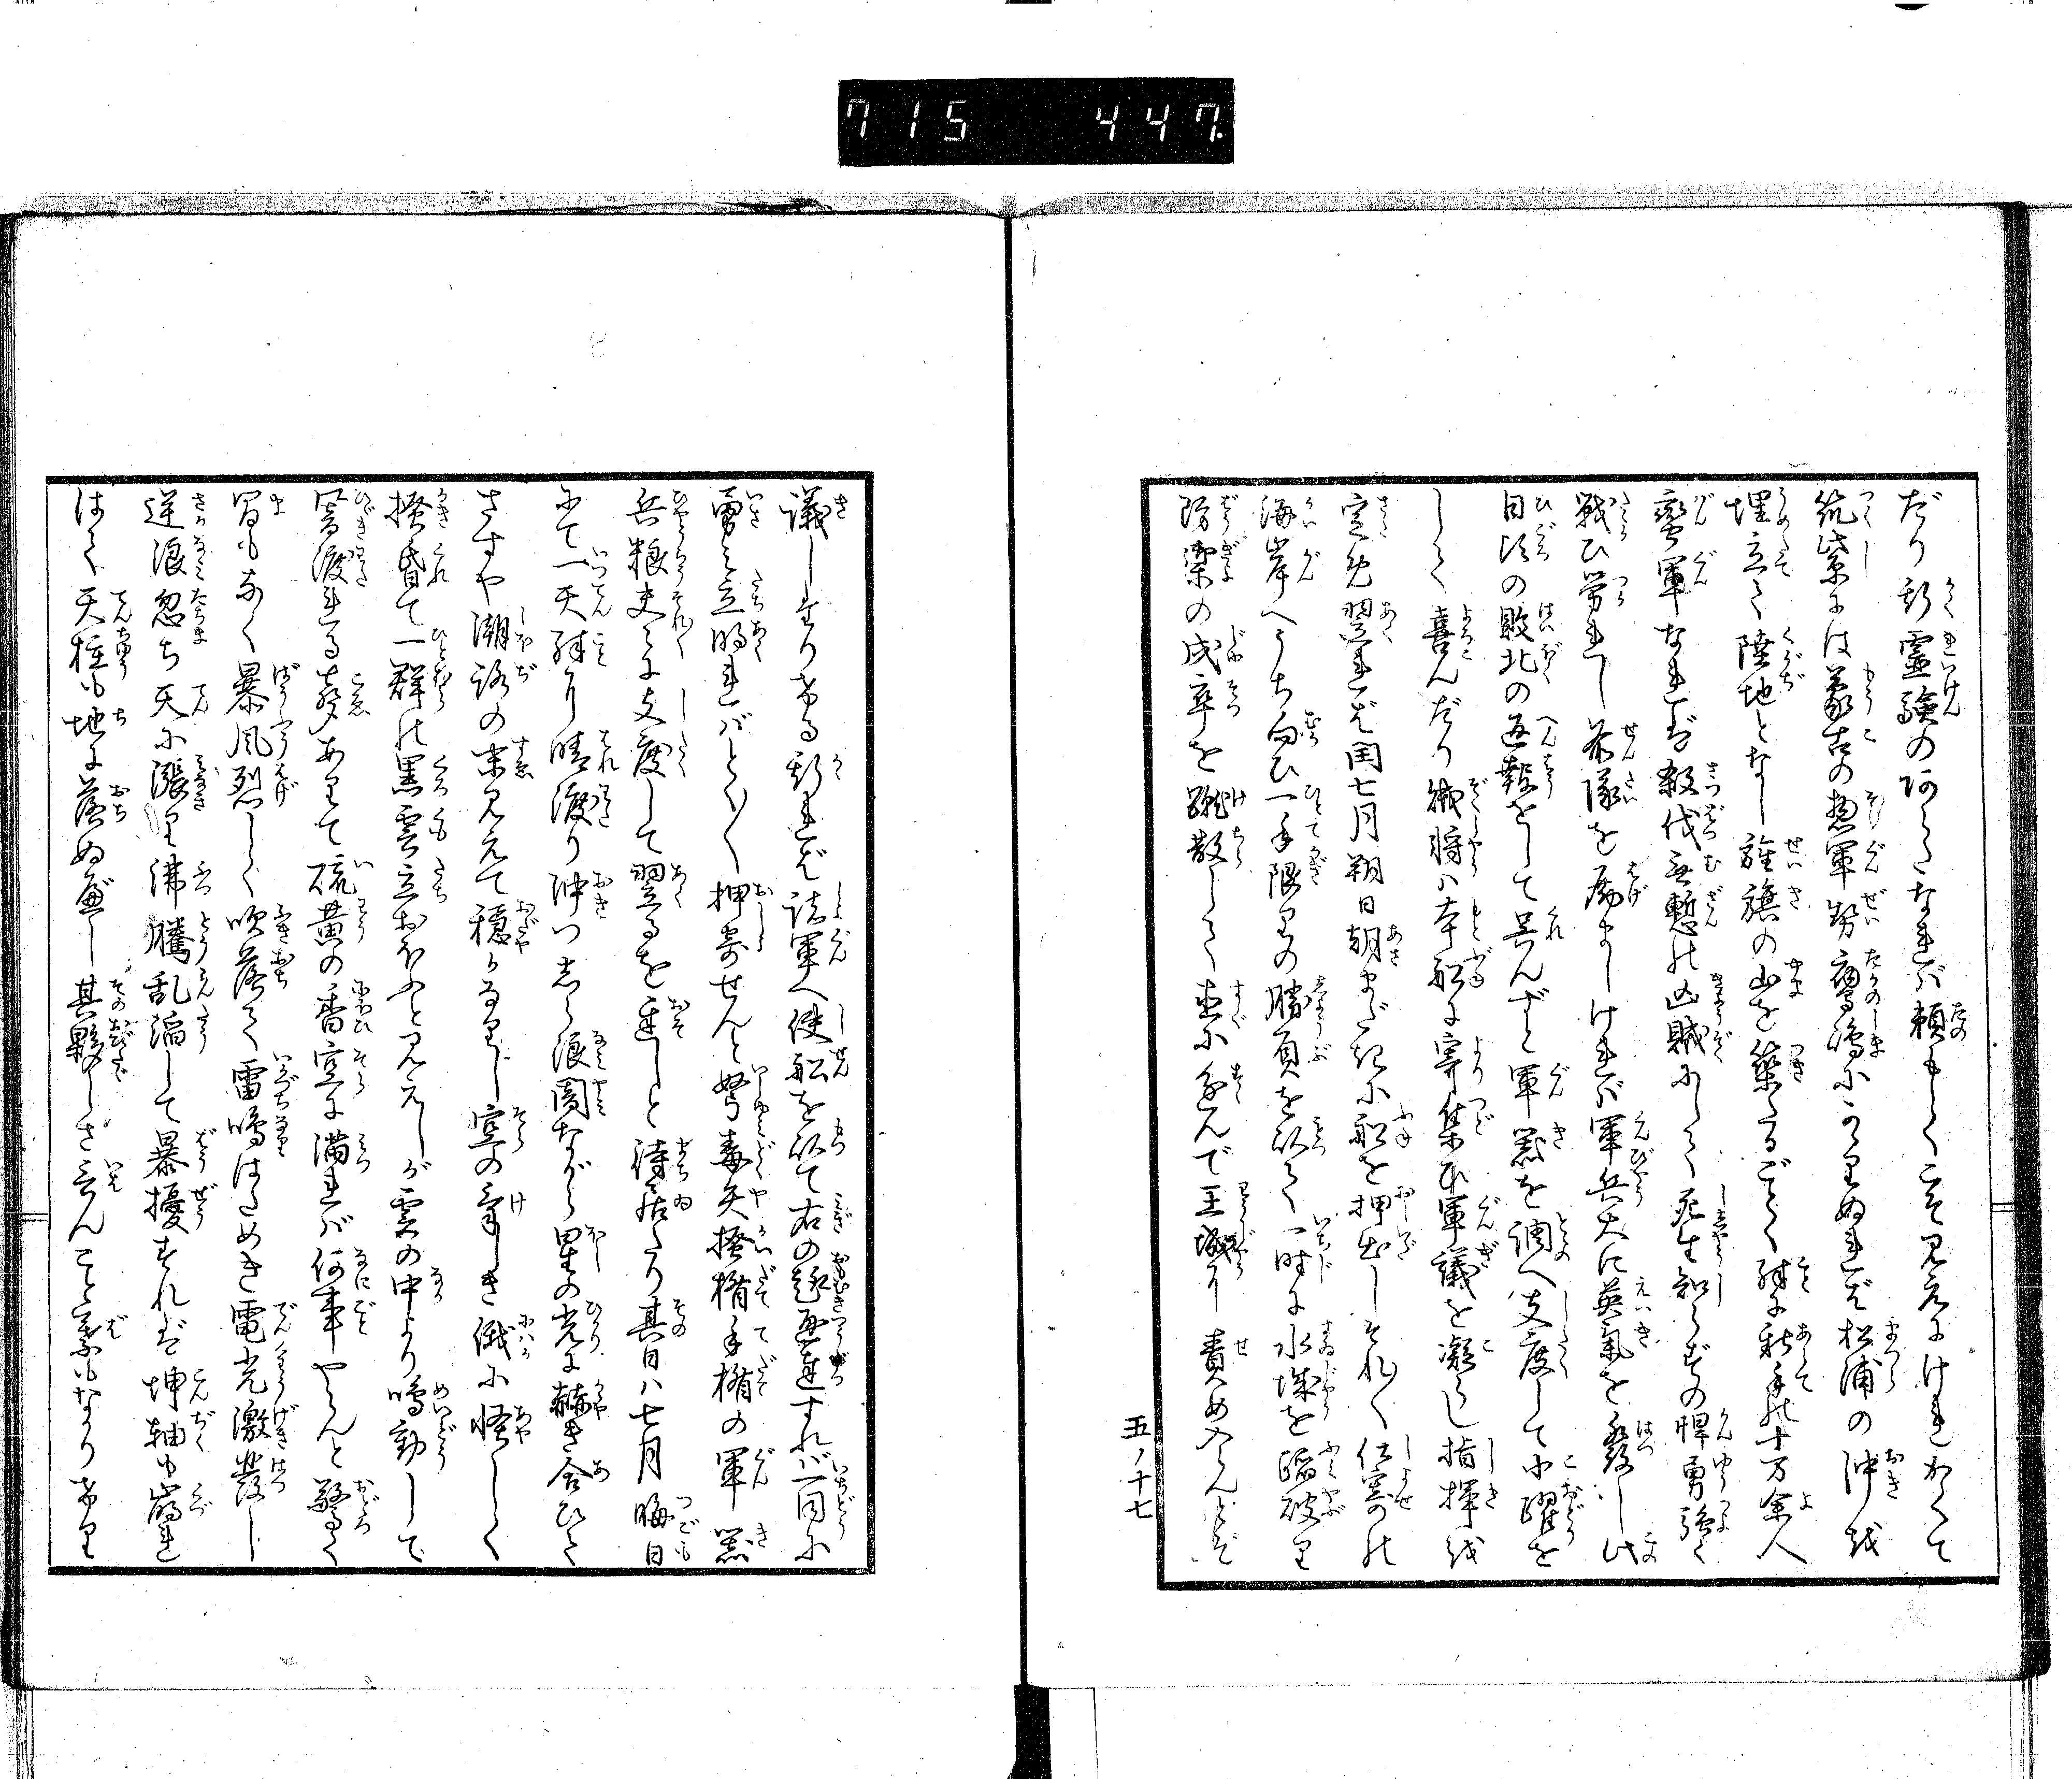 715 447.
だり斯霊験のあらたなれバ頼もしくこそ見えにけれかくて
筑紫には蒙古の惣軍勢鷹嶋にかゝりぬれば松浦の沖を
埋立て陸地となし旌旗の山を築たるごとく殊に新手の十万余人
蛮軍なれば殺伐無慙の凶賊にして死生知らずの悍勇強く
戦ひ労れし前隊を励ましけれバ軍兵大に英気を發し此
日頃の敗北の返報をして呉んずと軍器を調へ支度して小躍を
して喜んだり賊将ハ本船に寄集ひ軍議を凝らし指揮を
定め翌れば閏七月朔日朝まだきに船を押出しそれ〳〵仕寄の
海岸へうち向ひ一手限りの勝負を以て一時に水城を踏破り
防禦の戍卒を蹴散して直に進んで王城に責め入らんとぞ
五ノ十七
議しける斯れば諸軍へ使船を以て右の趣通達すれバ一同に
勇み立明れバとく〳〵押寄せんと弩毒矢掻楯手楯の軍器
兵粮夫々に支度して翌るを遅しと待居たり其日ハ七月晦日
にて一天殊に晴渡り沖つしら浪闇ながら星の光に赫き合ひて
さすや潮路の末見えて穏かなりし空の気しき俄に怪しく
掻昏て一群の黒雲立おほふと見えしが雲の中より鳴動して
響渡れる声ありて硫黄の香空に満れバ何事やらんと驚く
間もなく暴風烈しく吹落て雷鳴はためき電光激發し
逆浪忽ち天に漲り沸騰乱滔して暴擾すれば坤軸も崩れ
はて天柱も地に落ぬべし其夥しさ云んこと葉もなかりけり